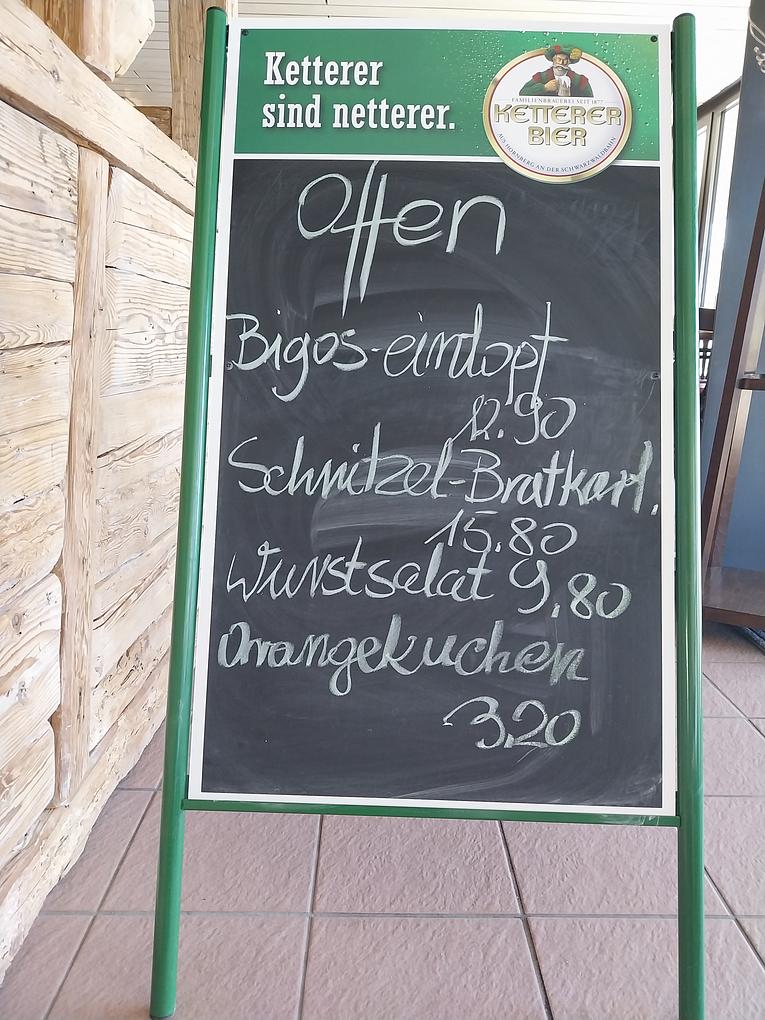 Ketterer
sind netterer.
FAMILIENBRAUEREI SEIT 1877
KETTERER
BIER
AUS HORNBERG AN DER SCHWARZWALDBAHN
Offen
Bigos-eintopf
12.90
Schnitzel-Bratkart.
15.80
Wurstsalat 9,80
Orangekuchen
3.20